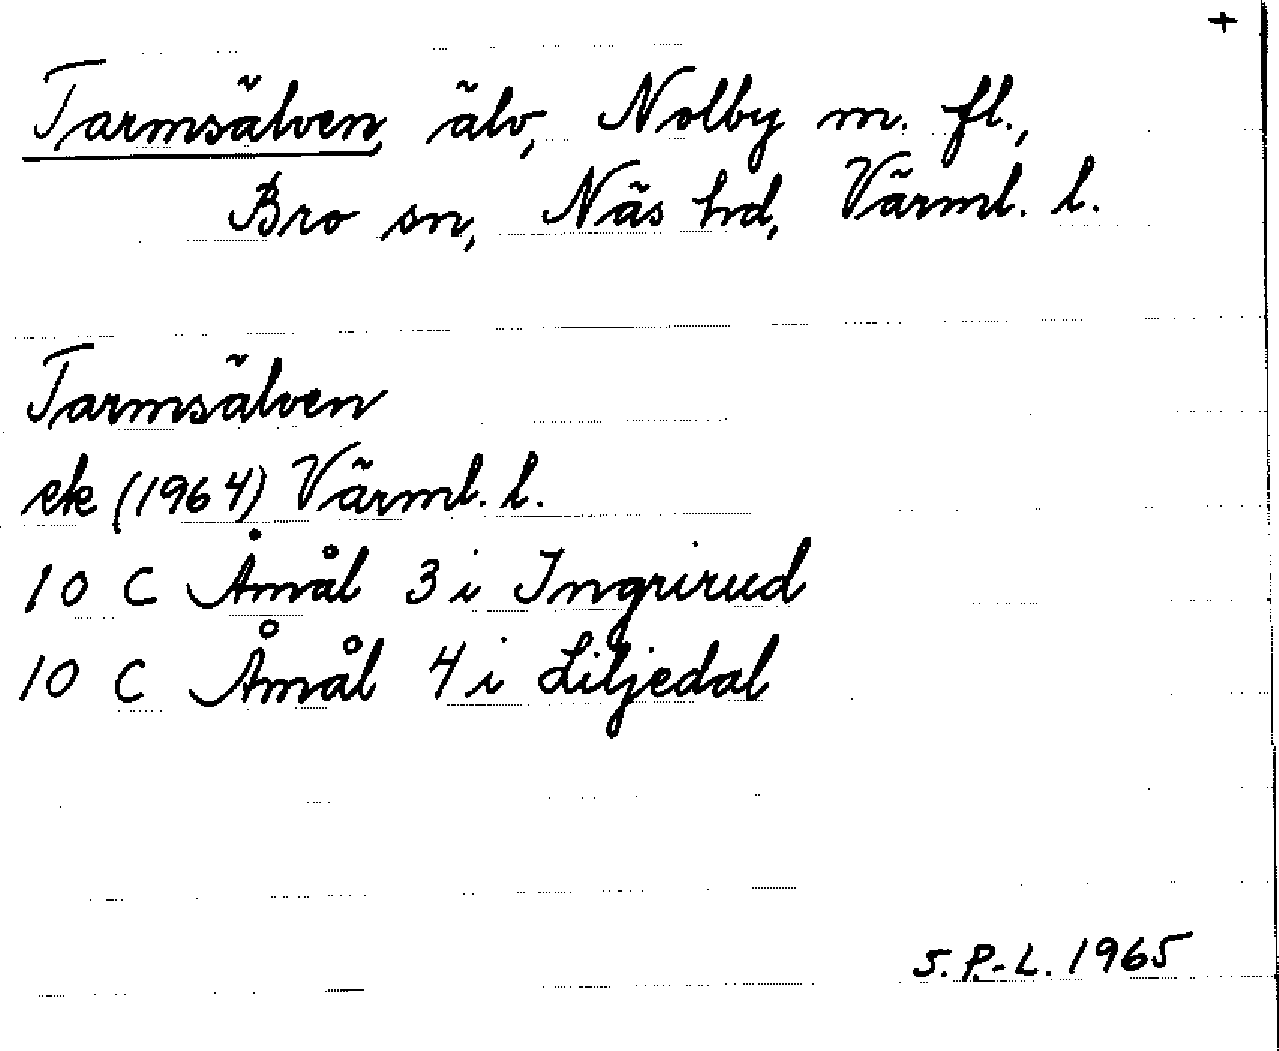 +
Tarmsälven, älv, Nolby m. fl.,
Bro sn, Näs hd, Värml. l.
Tarmsälven
ek (1964) Värml. l.
10 C Åmål 3 i Ingrirud
10 C Åmål 4 i Liljedal
S. P.-L. 1965